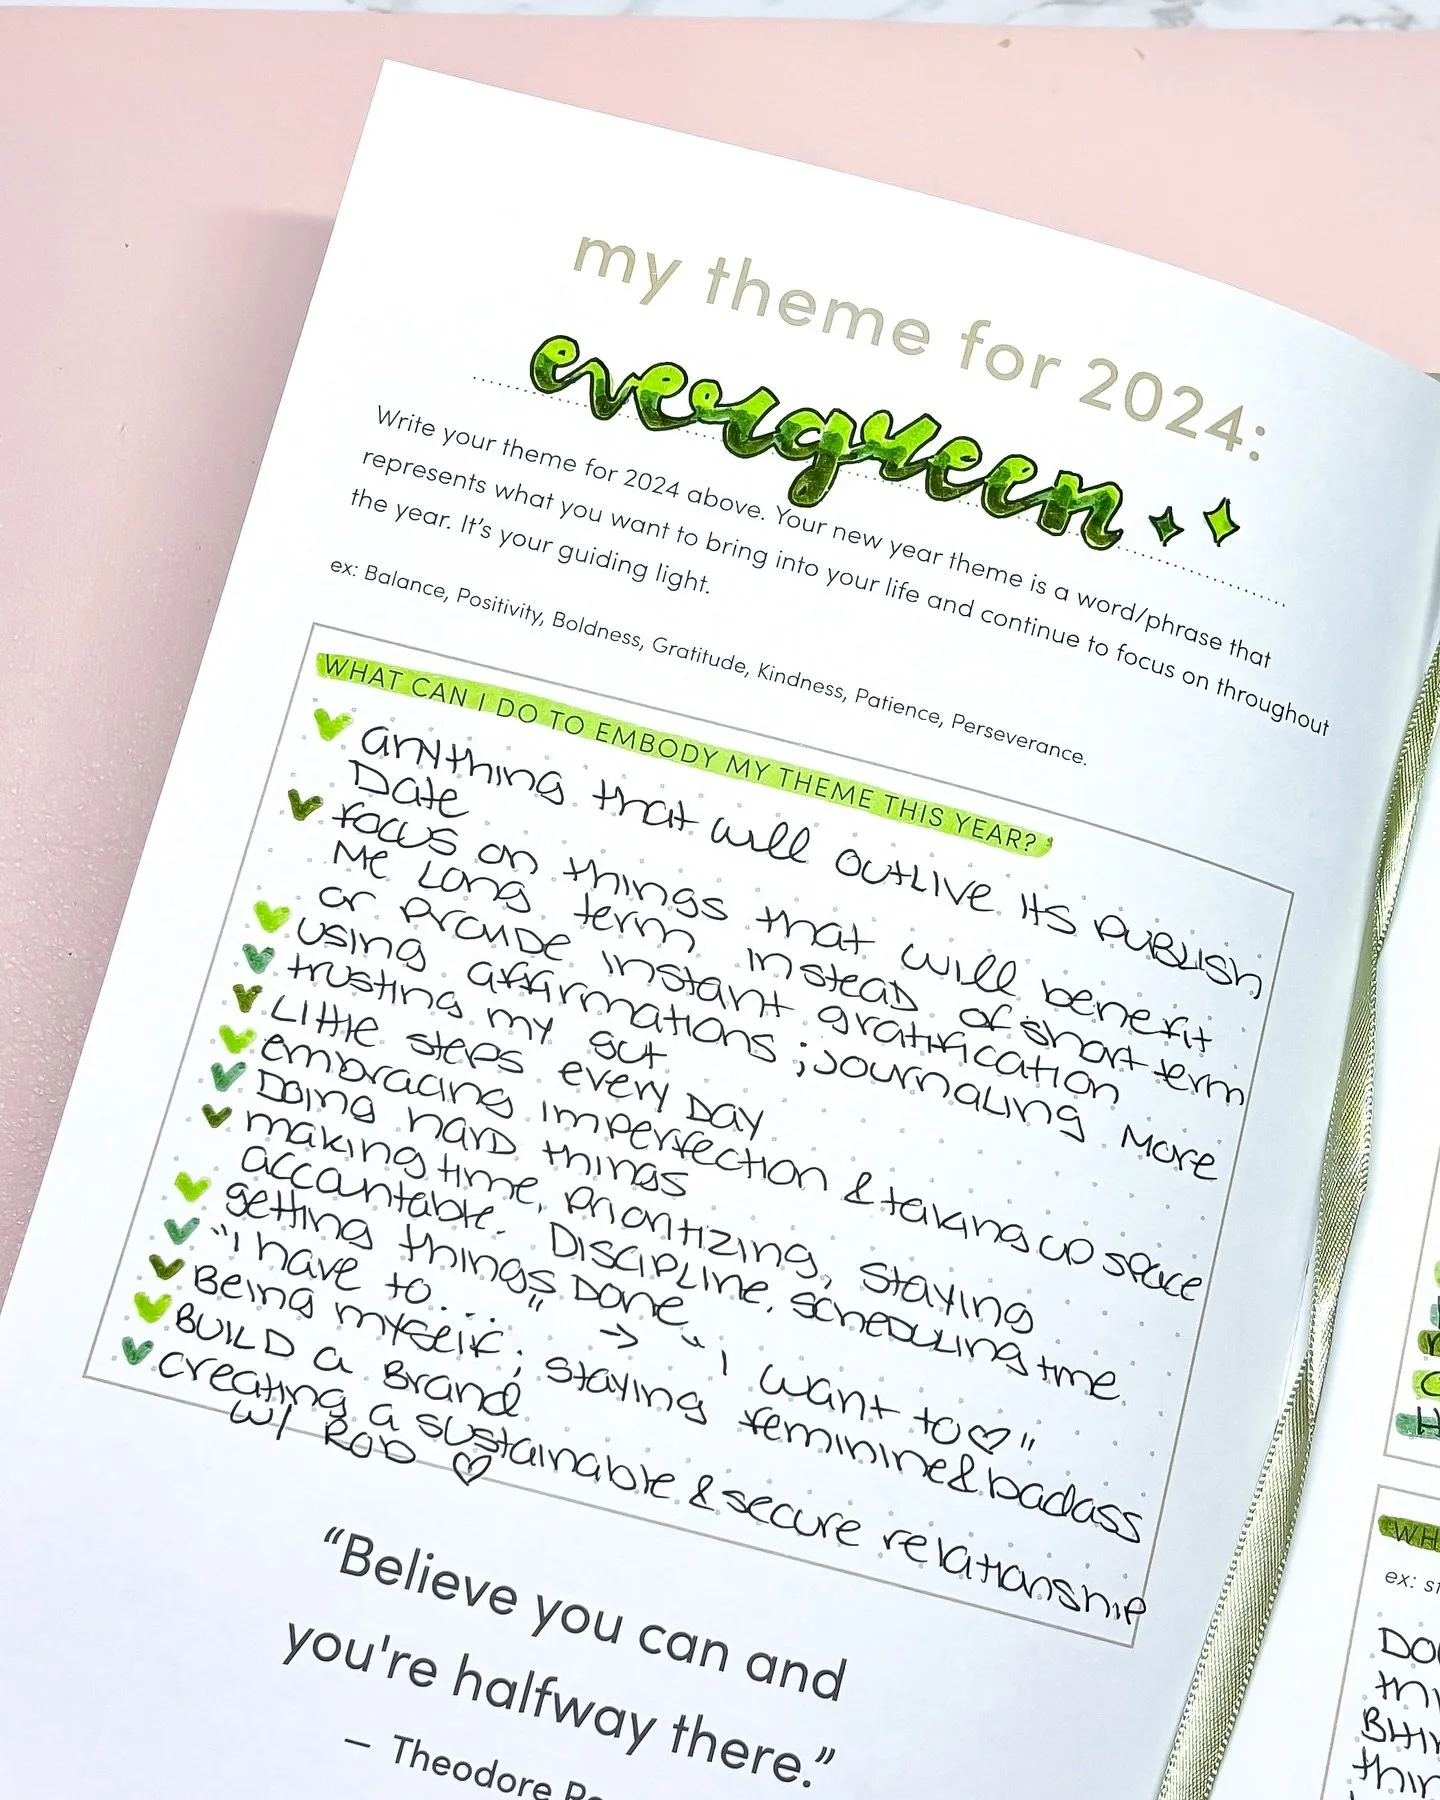 my theme for 2024:
evergreen
Write your theme for 2024 above. Your new year theme is a word/phrase that
represents what you want to bring into your life and continue to focus on throughout
the year. It's your guiding light.
ex: Balance, Positivity, Boldness, Gratitude, Kindness, Patience, Perseverance.
WHAT CAN I DO TO EMBODY MY THEME THIS YEAR?
anything that will outlive its publish
Date
focus on things that will benefit
me long term instead of short term
or provide instant gratification
using affirmations ; journaling more
trusting my gut
Little steps every day
embracing imperfection & taking up space
Doing hard things
making time, prioritizing, staying
accountable. Discipline. scheduling time
getting things done
"i have to..." → "i want to ♡"
Being myself; staying feminine & badass
BUILD a Brand
creating a sustainable & secure relationship
w/ ROB ♡
"Believe you can and
you're halfway there."
— Theodore
WH
ex: